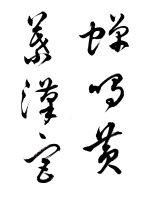 蟬鳴黃
葉漢宮